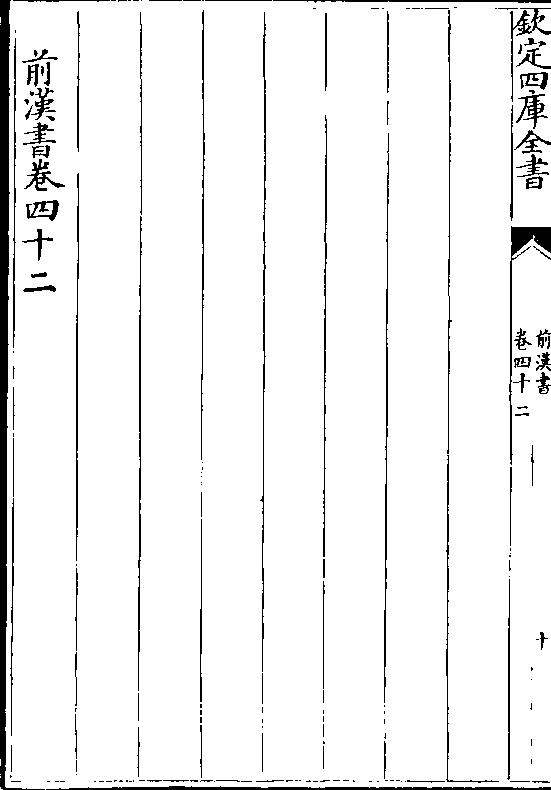 欽定四庫全書
前漢書
卷四十二
十
前漢書卷四十二